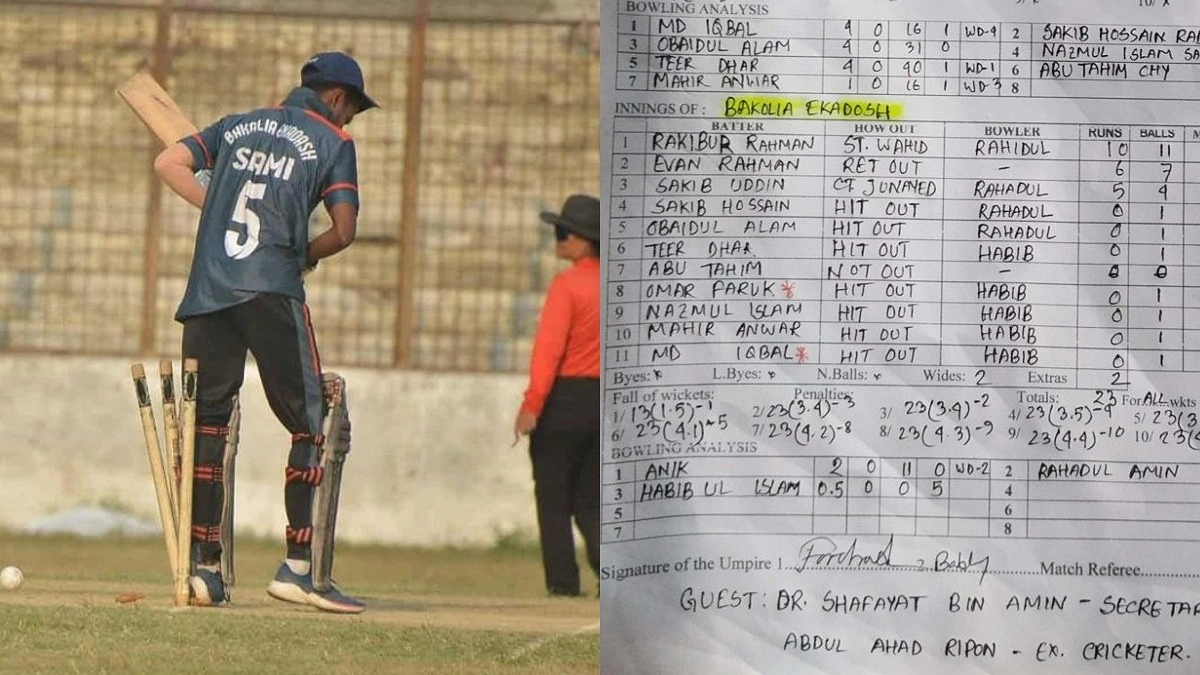 BAKALIA EKADASH
SAMI
5
10/ x
BOWLING ANALYSIS
1 MD IQBAL 4 0 16 1 WD-4 2 SAKIB HOSSAIN
3 OBAIDUL ALAM 4 0 31 0 4 NAZMUL ISLAM
5 TEER DHAR 4 0 40 1 WD-1 6 ABU TAHIM CHY
7 MAHIR ANWAR 1 0 16 1 WD-3 8
INNINGS OF: BAKOLIA EKADOSH
BATTER HOW OUT BOWLER RUNS BALLS
1 RAKIBUR RAHMAN ST. WAHID RAHIDUL 10 11
2 EVAN RAHMAN RET OUT - 6 7
3 SAKIB UDDIN CT JUNAYED RAHADUL 5 4
4 SAKIB HOSSAIN HIT OUT RAHADUL 0 1
5 OBAIDUL ALAM HIT OUT RAHADUL 0 1
6 TEER DHAR HIT OUT HABIB 0 1
7 ABU TAHIM NOT OUT - 0 0
8 OMAR FARUK * HIT OUT HABIB 0 1
9 NAZMUL ISLAM HIT OUT HABIB 0 1
10 MAHIR ANWAR HIT OUT HABIB 0 1
11 MD IQBAL * HIT OUT HABIB 0 1
Byes: x L.Byes: x N.Balls: x Wides: 2 Extras 2
Fall of wickets: Penalties: Totals: 23 For ALL wkts
1/ 13(1.5)-1 2/ 23(3.4)-3 3/ 23(3.4)-2 4/ 23(3.5)-4 5/ 23(3
6/ 23(4.1)-5 7/ 23(4.2)-8 8/ 23(4.3)-9 9/ 23(4.4)-10 10/ 23(
BOWLING ANALYSIS
1 ANIK 2 0 11 0 WD-2 2 RAHADUL AMIN
3 HABIB UL ISLAM 0.5 0 0 5 4
5 6
7 8
Signature of the Umpire 1. 2. Match Referee
GUEST: DR. SHAFAYAT BIN AMIN - SECRETAR
ABDUL AHAD RIPON - EX. CRICKETER.